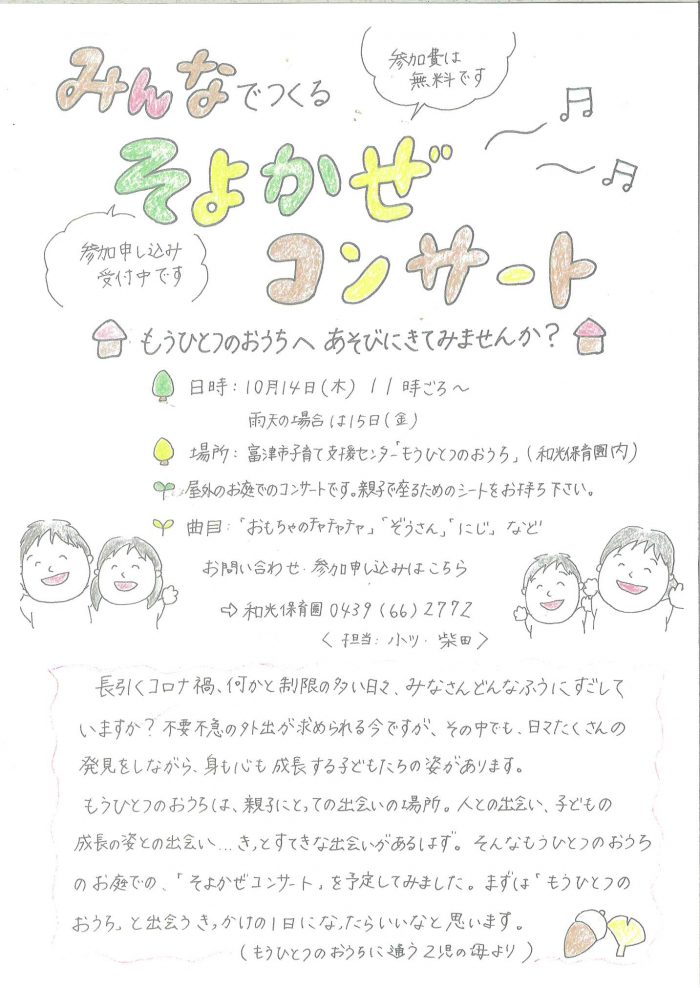 みんなでつくる
参加費は
無料です
そよかぜ
コンサート
参加申し込み
受付中です
もうひとつのおうちへ あそびにきてみませんか?
日時:10月14日(木) 11時ごろ~
雨天の場合は15日(金)
場所:富津市子育て支援センター「もうひとつのおうち」(和光保育園内)
屋外のお庭でのコンサートです。親子で座るためのシートをお持ち下さい。
曲目:「おもちゃのチャチャチャ」「ぞうさん」「にじ」など
お問い合わせ・参加申し込みはこちら
⇨和光保育園 0439(66)2772
〈担当:小ツ・柴田〉
長引くコロナ禍、何かと制限の多い日々、みなさんどんなふうにすごして
いますか?不要不急の外出が求められる今ですが、その中でも、日々たくさんの
発見をしながら、身も心も成長する子どもたちの姿があります。
もうひとつのおうちは、親子にとっての出会いの場所。人との出会い、子どもの
成長の姿との出会い...きっとすてきな出会いがあるはず。そんなもうひとつのおうち
のお庭での、「そよかぜコンサート」を予定してみました。まずは「もうひとつの
おうち」と出会うきっかけの1日になったらいいなと思います。
(もうひとつのおうちに通う2児の母より)